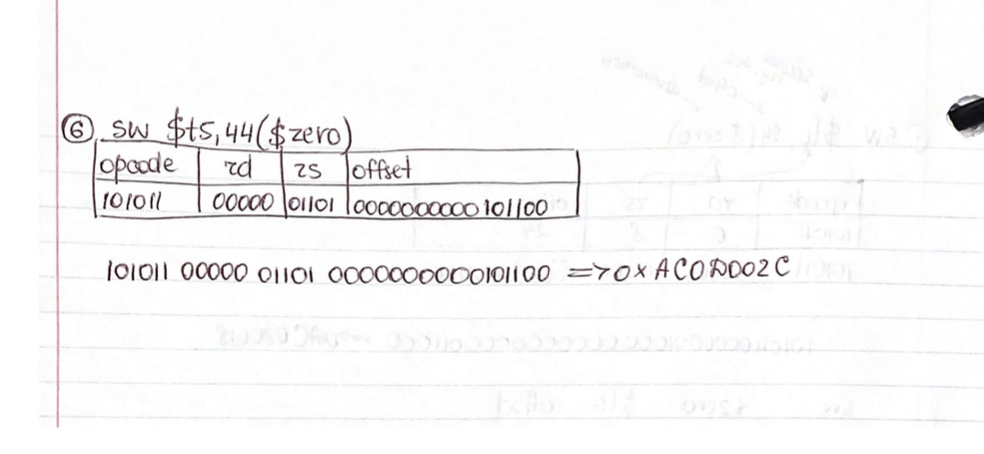 ⑥ sw $t5,44($zero)
opcode rd rs offset
101011 00000 01101 0000000000101100
101011 00000 01101 0000000000101100 => 0xAC0D002C